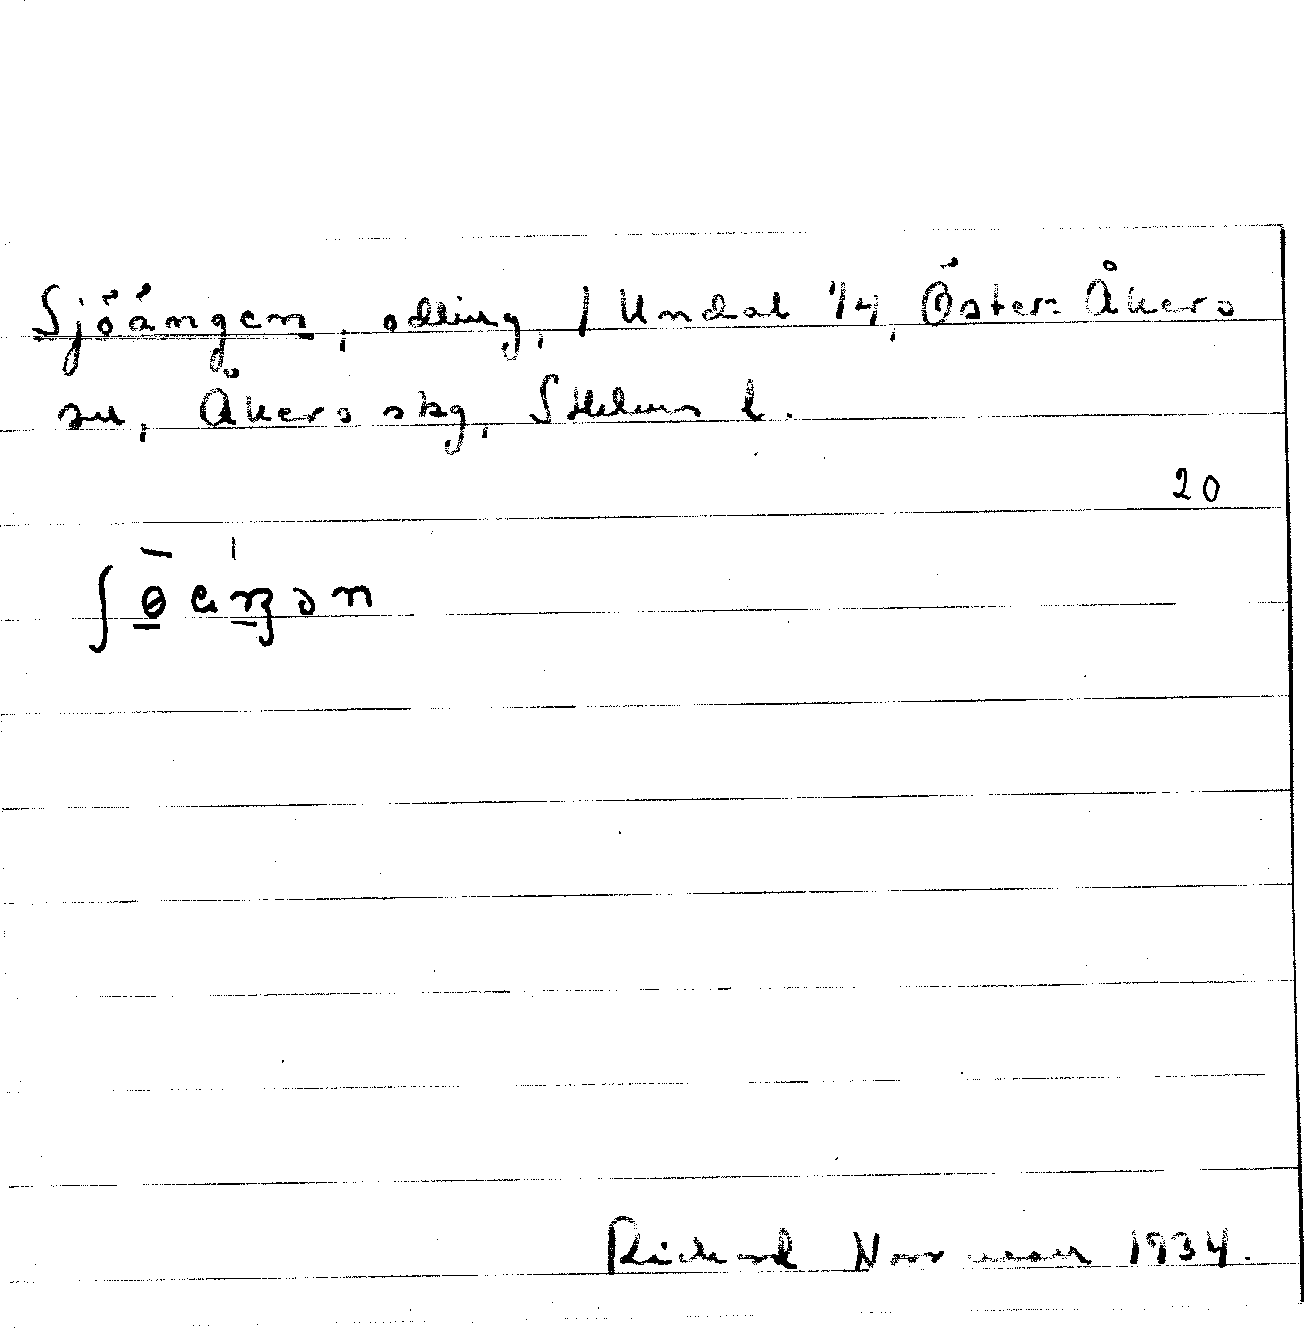 Sjöängen, odling, / Undal 1/4, Öster-Åkers
sn, Åkers skg, Sthlms l.
20
Richard Norrman 1934.